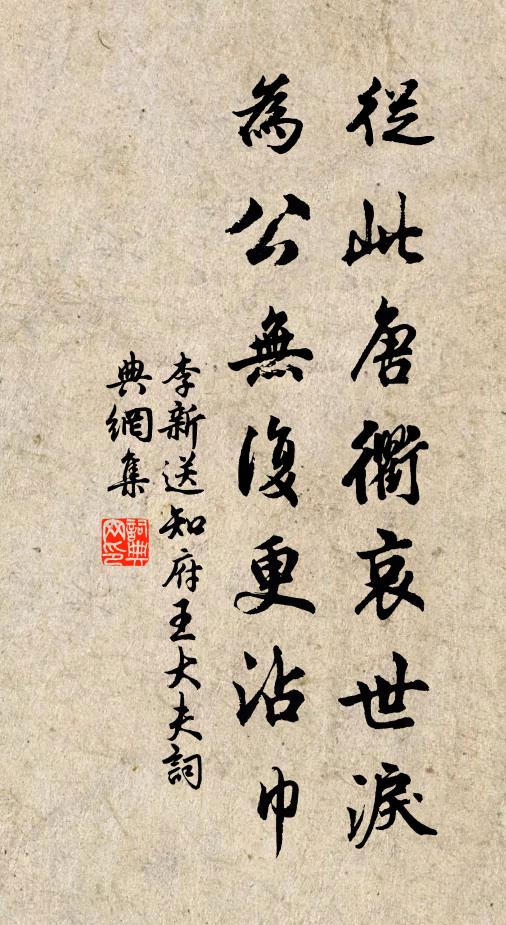 從此唐衢哀世淚
為公無復更沾巾
李新送知府王大夫詞
典網集
詞典网印